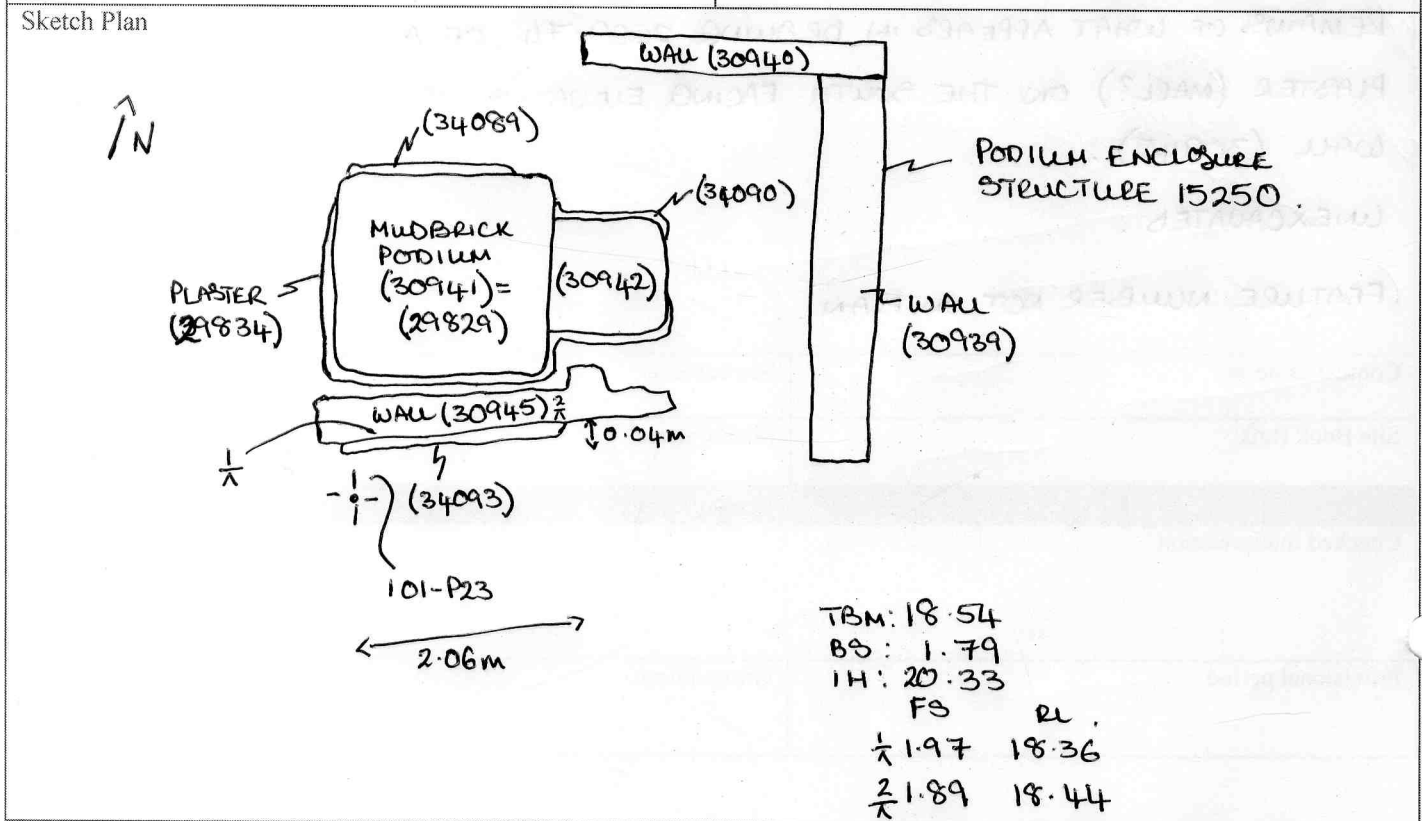 Sketch Plan
WALL (30940)
N
(34089)
PODIUM ENCLOSURE
STRUCTURE 15250.
(34090)
MUDBRICK
PODIUM
(30941)=
(29829)
(30942)
PLASTER
(29834)
WALL
(30939)
WALL (30945) 2
0.04m
1
(34093)
101-P23
2.06m
TBM: 18.54
BS: 1.79
IH: 20.33
FS RL.
1 1.97 18.36
2 1.89 18.44